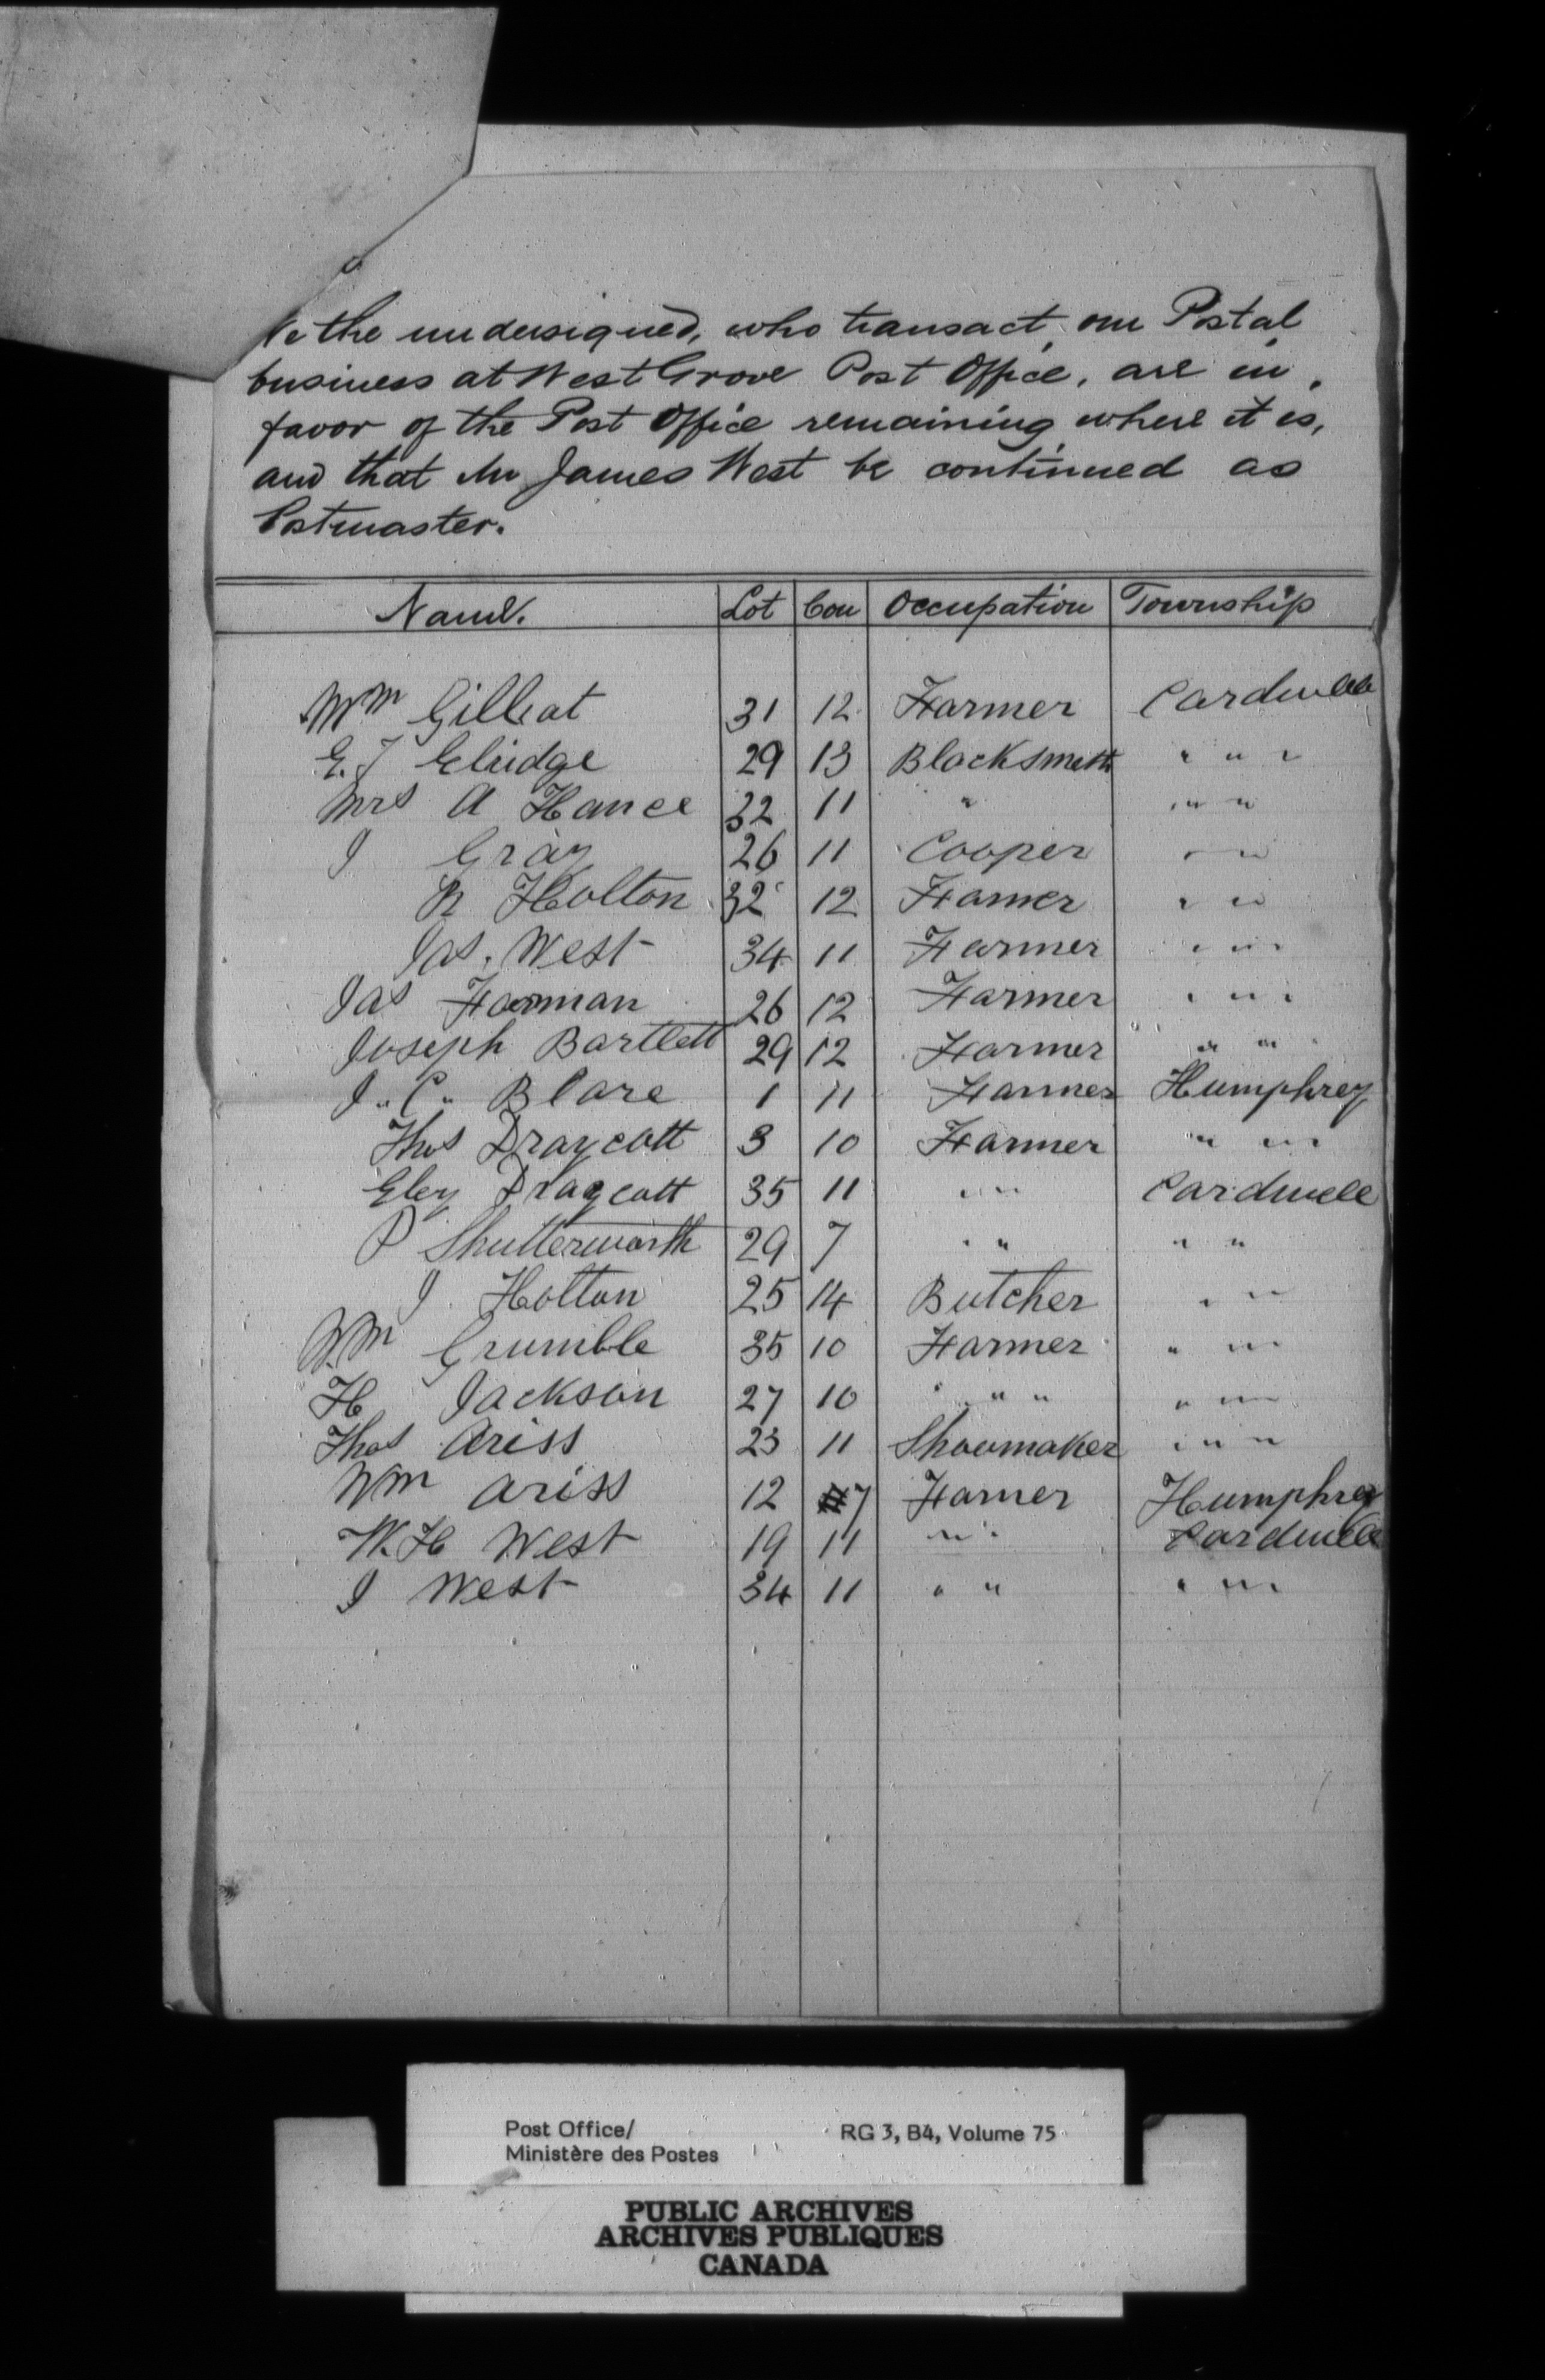 We the undersigned, who transact, our Postal
business at West Grove Post Office, are in,
favor of the Post Office remaining where it is,
and that Mr James West be continued as
Postmaster.
Name. Lot Con Occupation Township
Wm Gilleat 31 12 Farmer Cardwell
E. J Elridge 29 13 Blacksmith " " "
Mrs A Hance 32 11 " " " "
J Gray 26 11 Cooper " "
R Holton 32 12 Farmer " "
Jas. West 34 11 Farmer " "
Jas Forman 26 12 Farmer " " "
Joseph Bartlett 29 12 Farmer " "
J. C. Blare 1 11 Farmer Humphrey
Thos Draycott 3 10 Farmer " "
Eley Draycott 35 11 " " Cardwell
P Shutterworth 29 7 " " " "
J Holton 25 14 Butcher " "
Wm Grumble 35 10 Farmer " "
H Jackson 27 10 " " " " "
Thos Ariss 23 11 Shoumaker " " "
Wm Ariss 12 7 Farmer Humphrey
W. H West 19 11 " " Cardwell
J West 34 11 " " " "
Post Office/ RG 3, B4, Volume 75
Ministère des Postes
PUBLIC ARCHIVES
ARCHIVES PUBLIQUES
CANADA